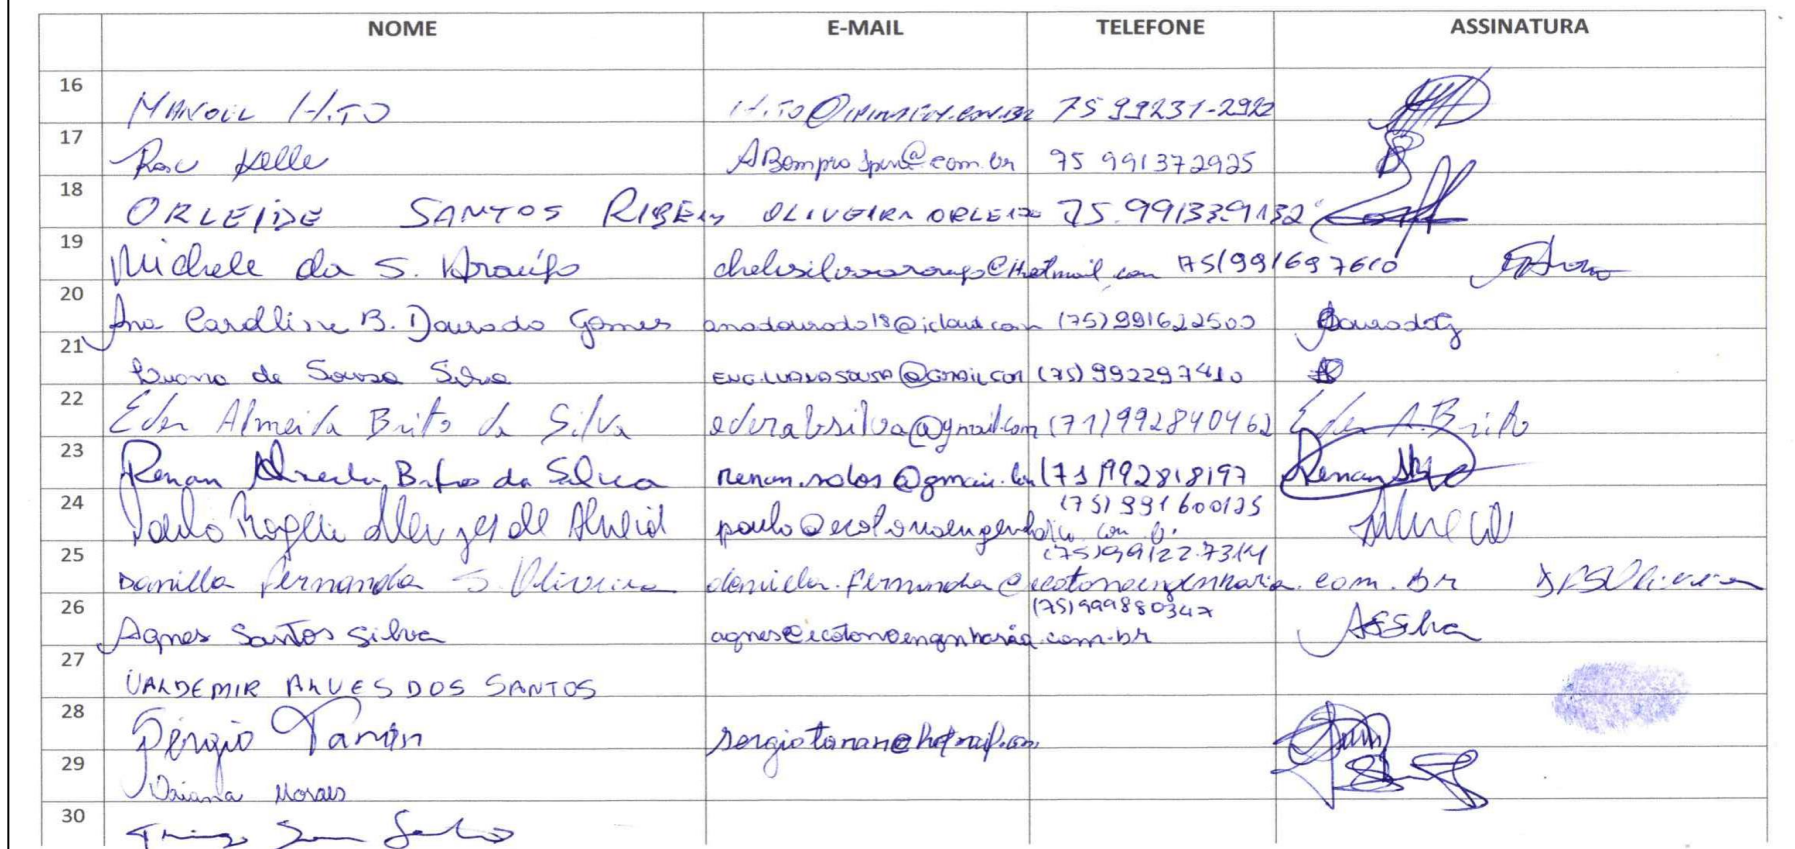 NOME E-MAIL TELEFONE ASSINATURA
16 MANOEL HITO 75 99231-2922
17 Rose Kelle 75 991372925
18 ORLEIDE SANTOS RIBEIRO OLIVEIRA ORLEIDE 75.991339132
19 Michele da S. Araújo 75(991697610
20 Ana Carolline B. Dourado Gomes anadourado18@icloud.com (75)991622500 DouradoG
21 Luana de Sousa Silva ENG.LUANASOUSA@GMAIL.COM (75)992297410
22 Eder Almeida Brito da Silva ederabsilva@gmail.com (71)992840462 Eder A. Brito
23 Renan Almeida Brito da Silva (71)992818197 Renan
24 Paulo Menezes de Almeida paulo@ecotonoengenharia.com.br (75)991600125 Almeida
25 Danilla Fernanda S. Oliveira daniella.fernanda@ecotonoengenharia.com.br (75)99122.7314 DFSOliveira
26 Agnes Santos Silva agnes@ecotonoengenharia.com.br (75)999880347 ASSilva
27 VALDEMIR ALVES DOS SANTOS
28 Sérgio Tanan sergiotanan@hotmail.com
29 Daiana Moraes
30